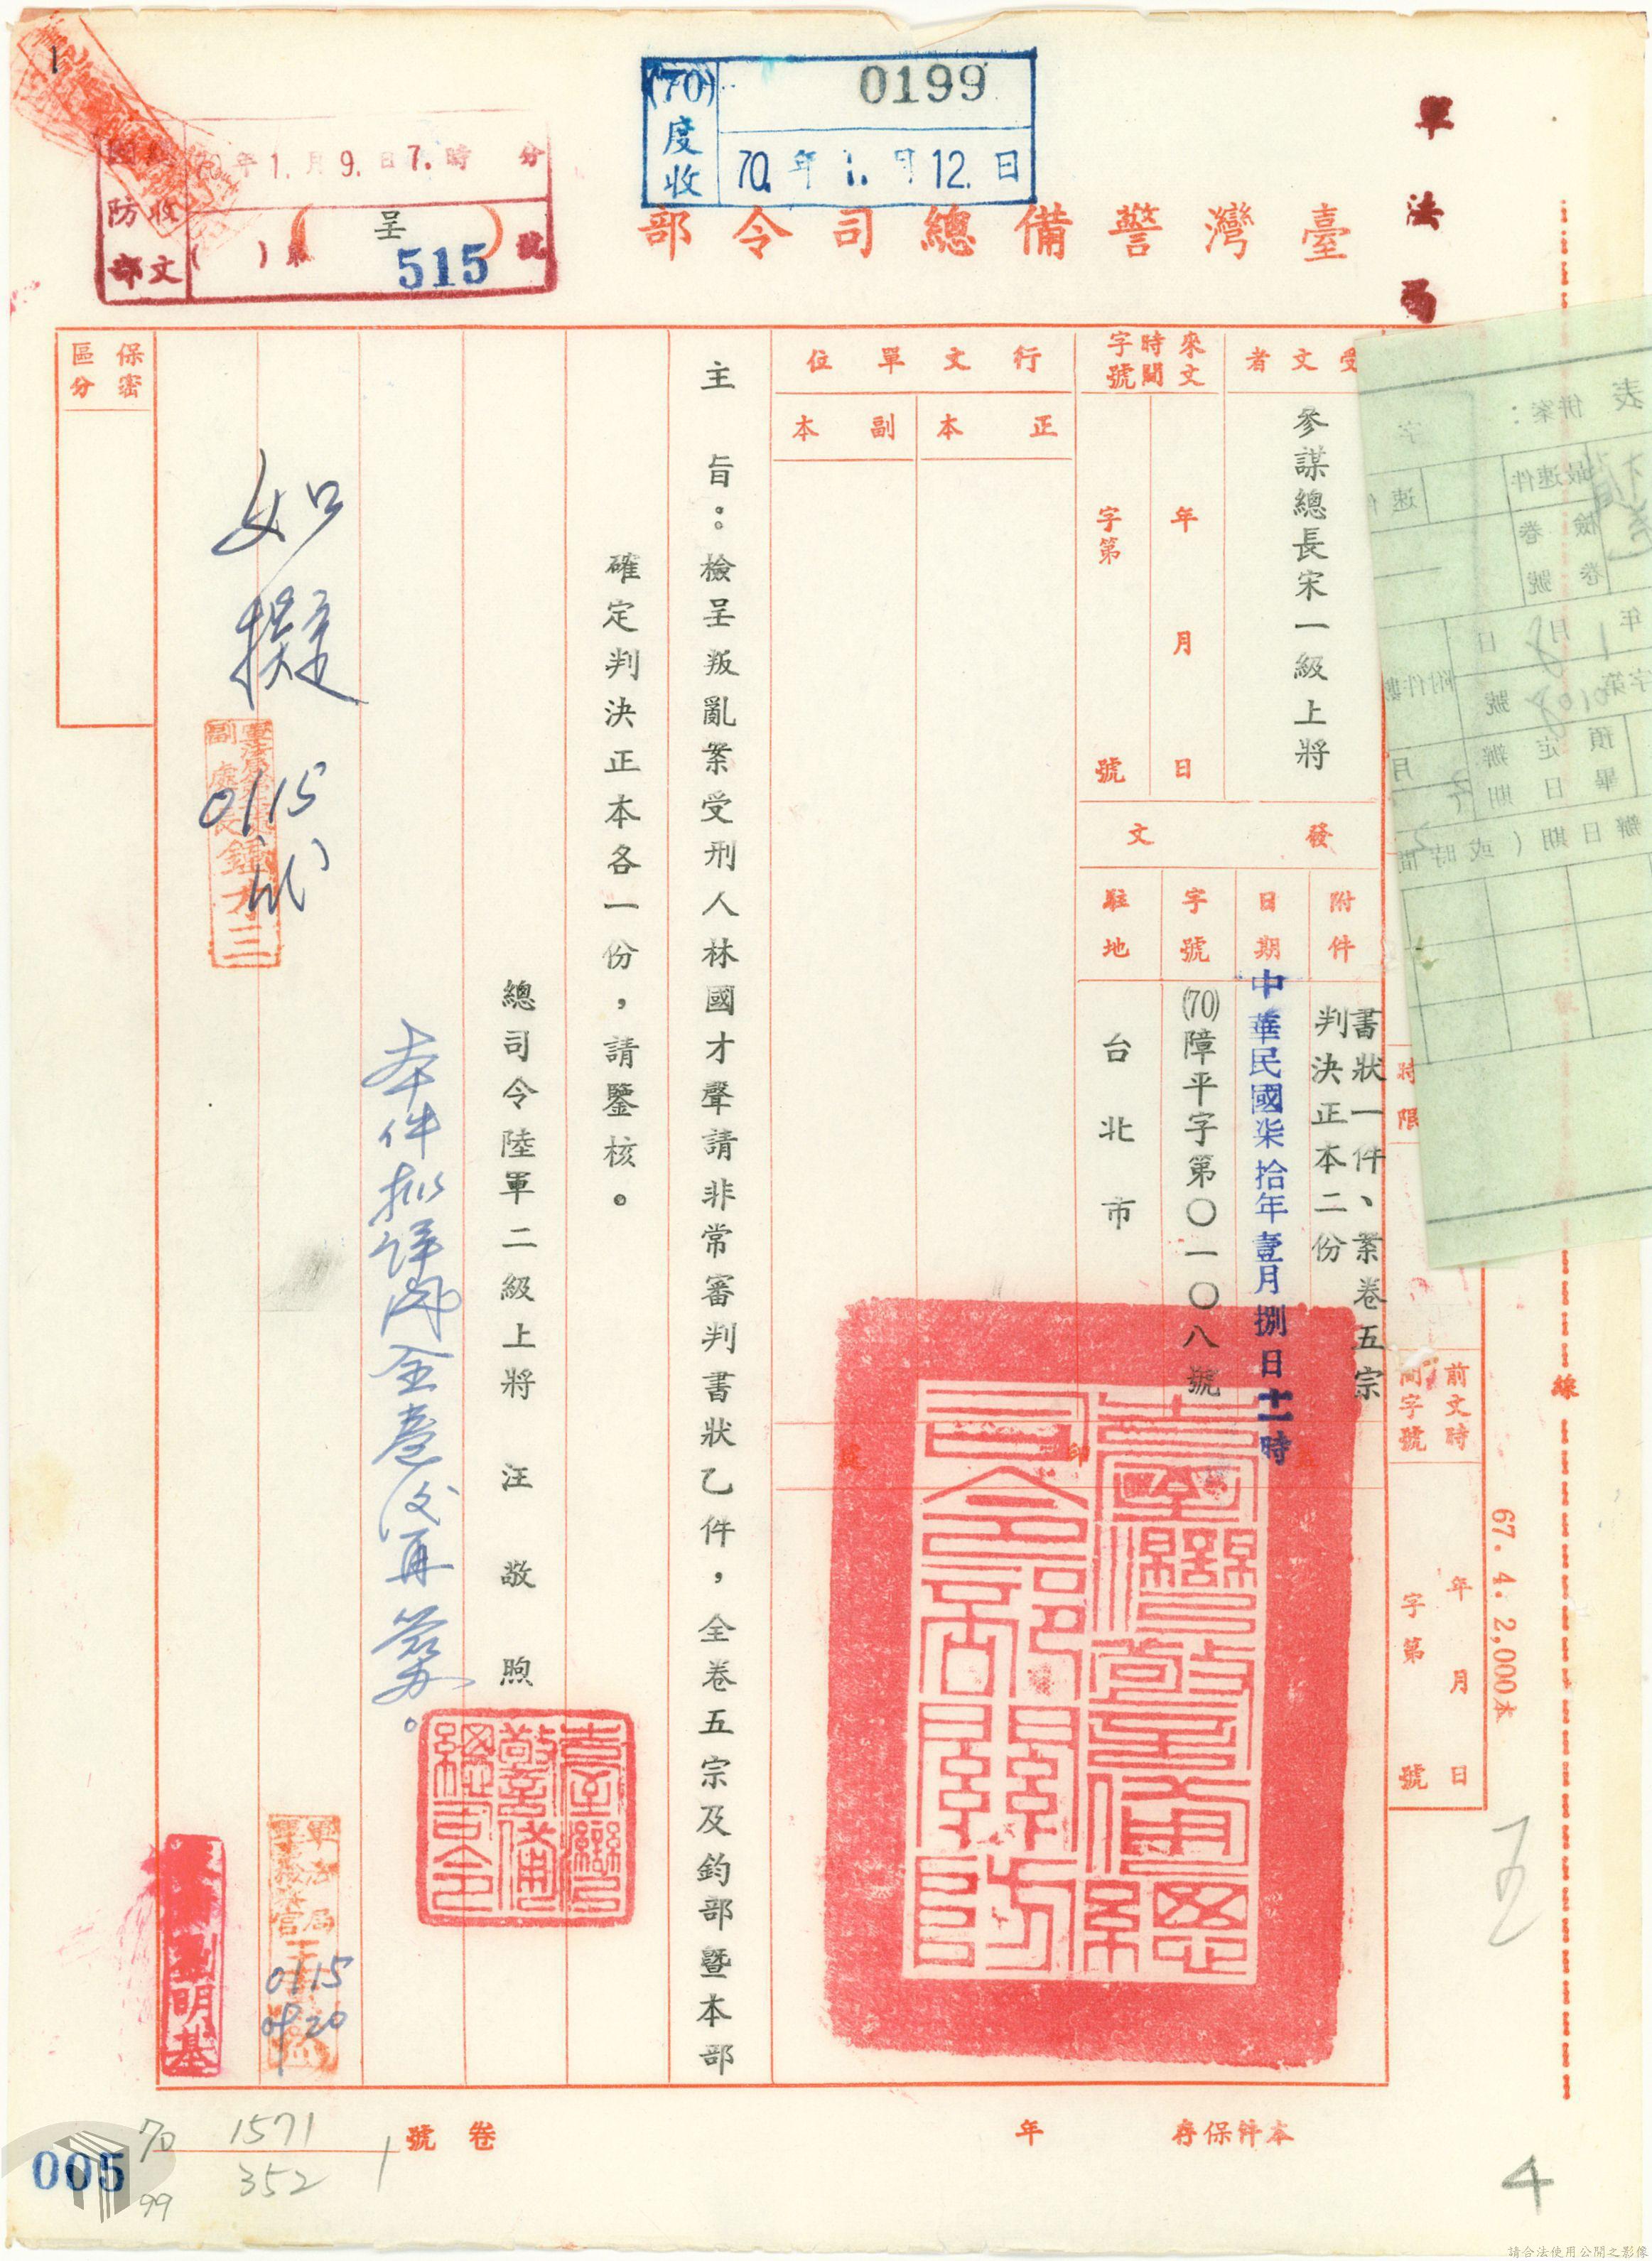 1
(70)度收
0199
70.年1.月12.日
國防部收文
70年1.月9.日7.時 分
( )第(呈)515號
軍法局
臺灣警備總司令部
受文者
參謀總長宋一級上將
來文時間字號
年 月 日
字第 號
行文單位
正本
副本
發文
附件
書狀一件、案卷五宗
判決正本二份
日期
中華民國柒拾年壹月捌日十一時
字號
(70)障平字第〇一〇八號
駐地
台北市
保密區分
時限
前文時間字號
年 月 日
字第 號
67.4.2,000本
線
主 旨：檢呈叛亂案受刑人林國才聲請非常審判書狀乙件，全卷五宗及鈞部暨本部
確定判決正本各一份，請鑒核。
總司令陸軍二級上將 汪敬煦
臺灣警備總司令部關防
臺灣警備總司令
本件擬詳閱全卷後再簽辦。
如擬
0115
副處長鍾才三
0115
0920
明基
表
併案：
最速件
速件
檢卷
卷號
年1月8日
字第0108號
附件數
預定辦畢日期
辦日期(或時間
本件保存 年
卷號
70
99
1571
352
1
005
4
請合法使用公開之影像